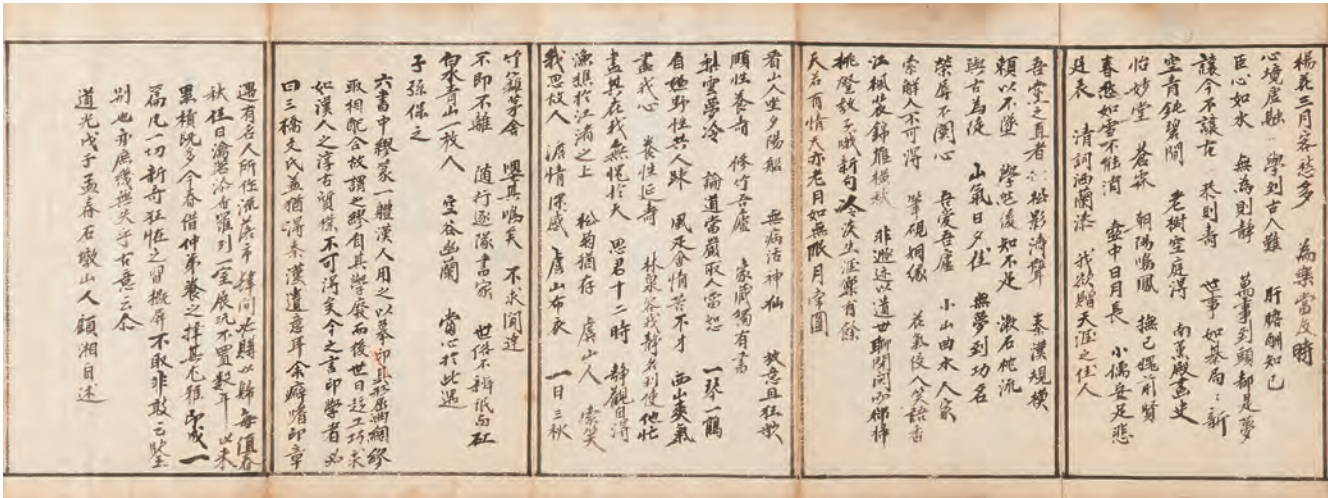 楊花三月客愁多　為樂當及時
心境虛融　學到古人難　肝膽酬知己
臣心如水　無為則靜　萬事到頭都是夢
讓今不讓古　恭則壽　世事如棊局ミ新
空青鈍碧間　老樹空庭得　南薰殿畫史
怡妙堂　蒼霖　朝陽鳴鳳　撫己愧前賢
春愁如雪不能消　壺中日月長　小儒安足悲
廷表　清詞洒蘭漆　我欲贈天涯之佳人
吾堂之真者　松影濤聲　秦漢規模
賴以不墜　學然後知不足　漱石枕流
與古為徒　山氣日夕佳　無夢到功名
榮辱不關心　吾愛吾廬　小山曲水人家
索解人不可得　筆硯姻緣　花氣侵人笑語香
江楓裝錦雁橫秋　非遯迹以遺世聊閉關而卻掃
挑燈敲了哦新句　冷淡生涯樂有餘
天若有情天亦老月如無限月常圓
看山人坐夕陽船　無病活神仙　放意且狂歌
頤性養壽　修竹吾廬　家藏獨有書
梨雲夢冷　論道當嚴取人當恕　一琴一鶴
自趣野性共人疎　風定會情苦不才　西山爽氣
盡我心　養性延壽　林泉容我靜名利使他忙
盡其在我無愧於天　思君十二時　靜觀自得
漁樵於江渚之上　松菊猶存　虞山人　索笑
我思故人　澹情深感　虞山布衣　一日三秋
竹籬茅舍　嚶其鳴矣　不求聞達
不即不離　隨行逐隊書家　世俗不辨珷與玒
白水青山一放人　空谷幽蘭　當心於此遇
子孫保之
六書中繆篆一體漢人用之以摹印其形屈曲綢繆
取相配合故謂之繆自其學廢而後世日趨工巧求
如漢人之淳古質樸不可得矣今之言印學者必
曰三橋文氏蓋猶得秦漢遺意耳余癖嗜印章
遇有名人所作流落市肆間必購以歸每值春
秋佳日瀹茗添香羅列一室展玩不置數年以來
累積既多今春借仲弟養之擇其尤雅印成一
篇凡一切新奇狂怪之習概屏不取非敢云鑒
別也亦庶幾無失乎古意云尒
道光戊子孟春石墩山人顧湘自述